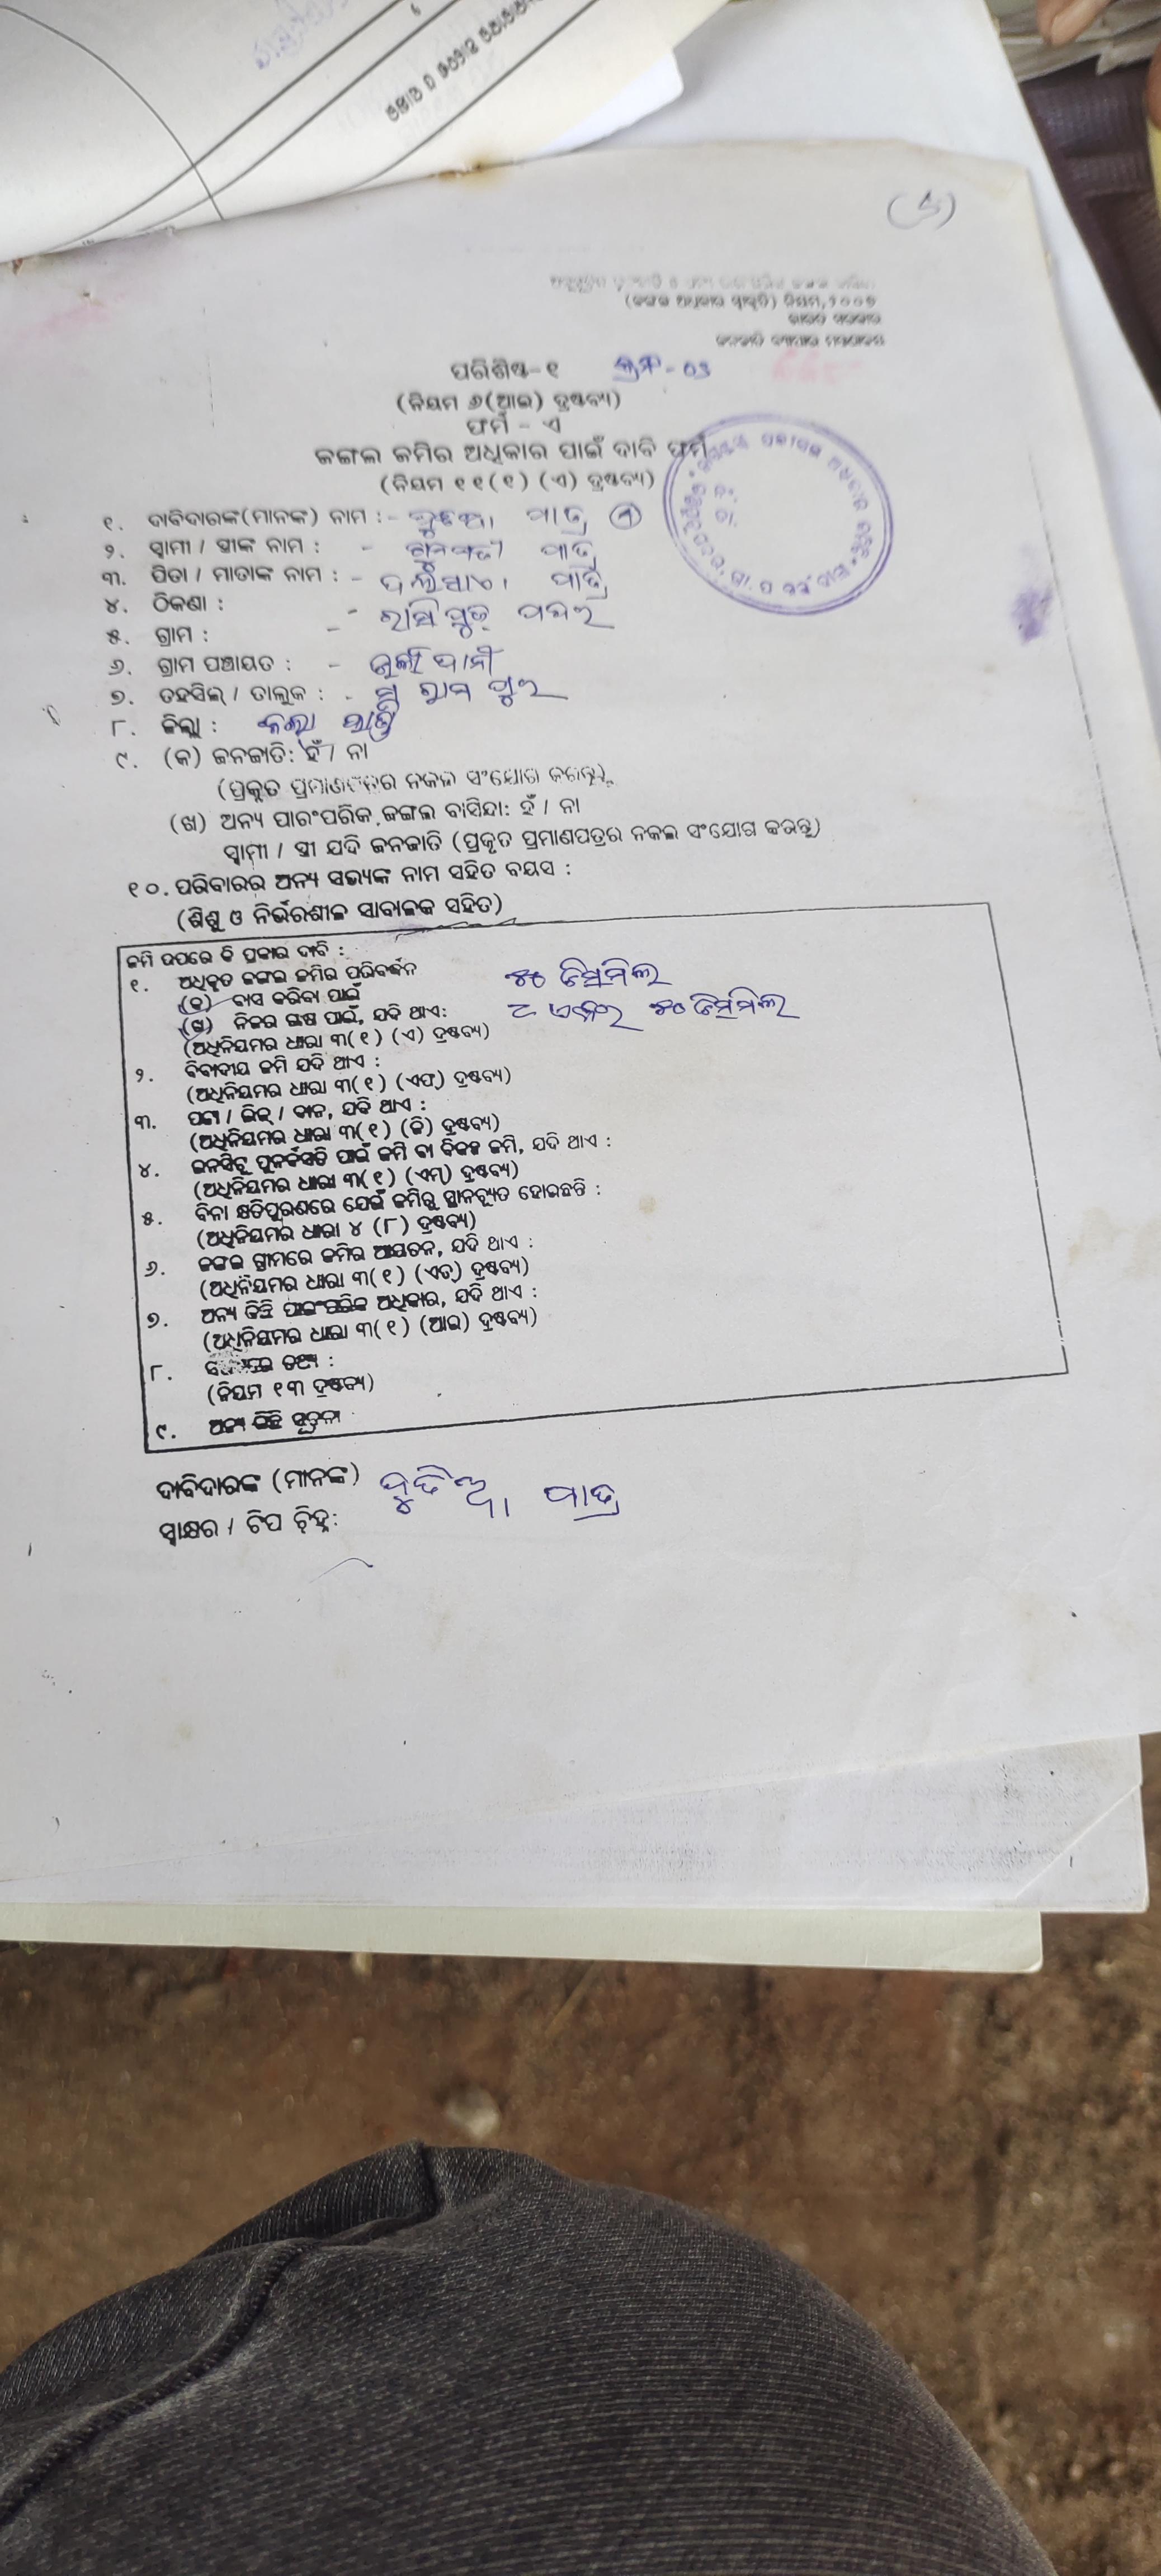 (ଜଙ୍ଗଲ ଅଧିକାର ସ୍ୱୀକୃତି) ନିୟମ, ୨୦୦୭
ଭାରତ ସରକାର
ଜନଜାତି ବ୍ୟାପାର ମନ୍ତ୍ରାଳୟ
ପରିଶିଷ୍ଟ-୧ କ୍ରମ-03
(ନିୟମ ୬(ଆଇ) ଦ୍ରଷ୍ଟବ୍ୟ)
ଫର୍ମ - ଏ
ଜଙ୍ଗଲ ଜମିର ଅଧିକାର ପାଇଁ ଦାବି ଫର୍ମ
(ନିୟମ ୧୧(୧) (ଏ) ଦ୍ରଷ୍ଟବ୍ୟ)
୧. ଦାବିଦାରଙ୍କ(ମାନଙ୍କ) ନାମ :- ପାତ୍ର
୨. ସ୍ୱାମୀ / ସ୍ତ୍ରୀଙ୍କ ନାମ : - ପାତ୍ର
୩. ପିତା / ମାତାଙ୍କ ନାମ : - ପାତ୍ର
୪. ଠିକଣା : -
୫. ଗ୍ରାମ : -
୬. ଗ୍ରାମ ପଞ୍ଚାୟତ : -
୭. ତହସିଲ୍ / ତାଲୁକ : -
୮. ଜିଲ୍ଲା : କଳାହାଣ୍ଡି
୯. (କ) ଜନଜାତି: ହଁ / ନା
(ପ୍ରକୃତ ପ୍ରମାଣପତ୍ରର ନକଲ ସଂଯୋଗ କରନ୍ତୁ)
(ଖ) ଅନ୍ୟ ପାରଂପରିକ ଜଙ୍ଗଲ ବାସିନ୍ଦା: ହଁ / ନା
ସ୍ୱାମୀ / ସ୍ତ୍ରୀ ଯଦି ଜନଜାତି (ପ୍ରକୃତ ପ୍ରମାଣପତ୍ରର ନକଲ ସଂଯୋଗ କରନ୍ତୁ)
୧୦. ପରିବାରର ଅନ୍ୟ ସଭ୍ୟଙ୍କ ନାମ ସହିତ ବୟସ :
(ଶିଶୁ ଓ ନିର୍ଭରଶୀଳ ସାବାଳକ ସହିତ)
ଜମି ଉପରେ କି ପ୍ରକାର ଦାବି :
୧. ଅଧିକୃତ ଜଙ୍ଗଲ ଜମିର ପରିବର୍ଦ୍ଧନ
(କ) ବାସ କରିବା ପାଇଁ ୪୦ ଡିସିମିଲ
(ଖ) ନିଜର ଚାଷ ପାଇଁ, ଯଦି ଥାଏ: ୪୦ ଡିସିମିଲ
(ଅଧିନିୟମର ଧାରା ୩(୧) (ଏ) ଦ୍ରଷ୍ଟବ୍ୟ)
୨. ବିବାଦୀୟ ଜମି ଯଦି ଥାଏ :
(ଅଧିନିୟମର ଧାରା ୩(୧) (ଏଫ୍) ଦ୍ରଷ୍ଟବ୍ୟ)
୩. ପଟ୍ଟା / ଲିଜ୍ / ଦାନ, ଯଦି ଥାଏ :
(ଅଧିନିୟମର ଧାରା ୩(୧) (ଜି) ଦ୍ରଷ୍ଟବ୍ୟ)
୪. ଇନସିଟୁ ପୁନର୍ବସତି ପାଇଁ ଜମି ବା ବିକଳ୍ପ ଜମି, ଯଦି ଥାଏ :
(ଅଧିନିୟମର ଧାରା ୩(୧) (ଏମ୍) ଦ୍ରଷ୍ଟବ୍ୟ)
୫. ବିନା କ୍ଷତିପୂରଣରେ ଯେଉଁ ଜମିରୁ ସ୍ଥାନଚ୍ୟୁତ ହୋଇଛନ୍ତି :
(ଅଧିନିୟମର ଧାରା ୪ (୮) ଦ୍ରଷ୍ଟବ୍ୟ)
୬. ଜଙ୍ଗଲ ଗ୍ରାମରେ ଜମିର ଆୟତନ, ଯଦି ଥାଏ :
(ଅଧିନିୟମର ଧାରା ୩(୧) (ଏଚ୍) ଦ୍ରଷ୍ଟବ୍ୟ)
୭. ଅନ୍ୟ କିଛି ପାରଂପରିକ ଅଧିକାର, ଯଦି ଥାଏ :
(ଅଧିନିୟମର ଧାରା ୩(୧) (ଆଇ) ଦ୍ରଷ୍ଟବ୍ୟ)
୮. ତଥ୍ୟ :
(ନିୟମ ୧୩ ଦ୍ରଷ୍ଟବ୍ୟ)
୯. ଅନ୍ୟ କିଛି ସୂଚନା
ଦାବିଦାରଙ୍କ (ମାନଙ୍କ) ପାତ୍ର
ସ୍ୱାକ୍ଷର / ଟିପ ଚିହ୍ନ: